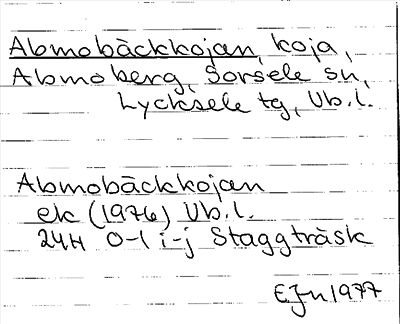 Abmobäckkojan, koja,
Abmoberg, Sorsele sn,
Lycksele tg, Vb.l.
Abmobäckkojan
ek (1976) Vb.l.
24H 0-1 i-j Staggträsk
EJn 1977